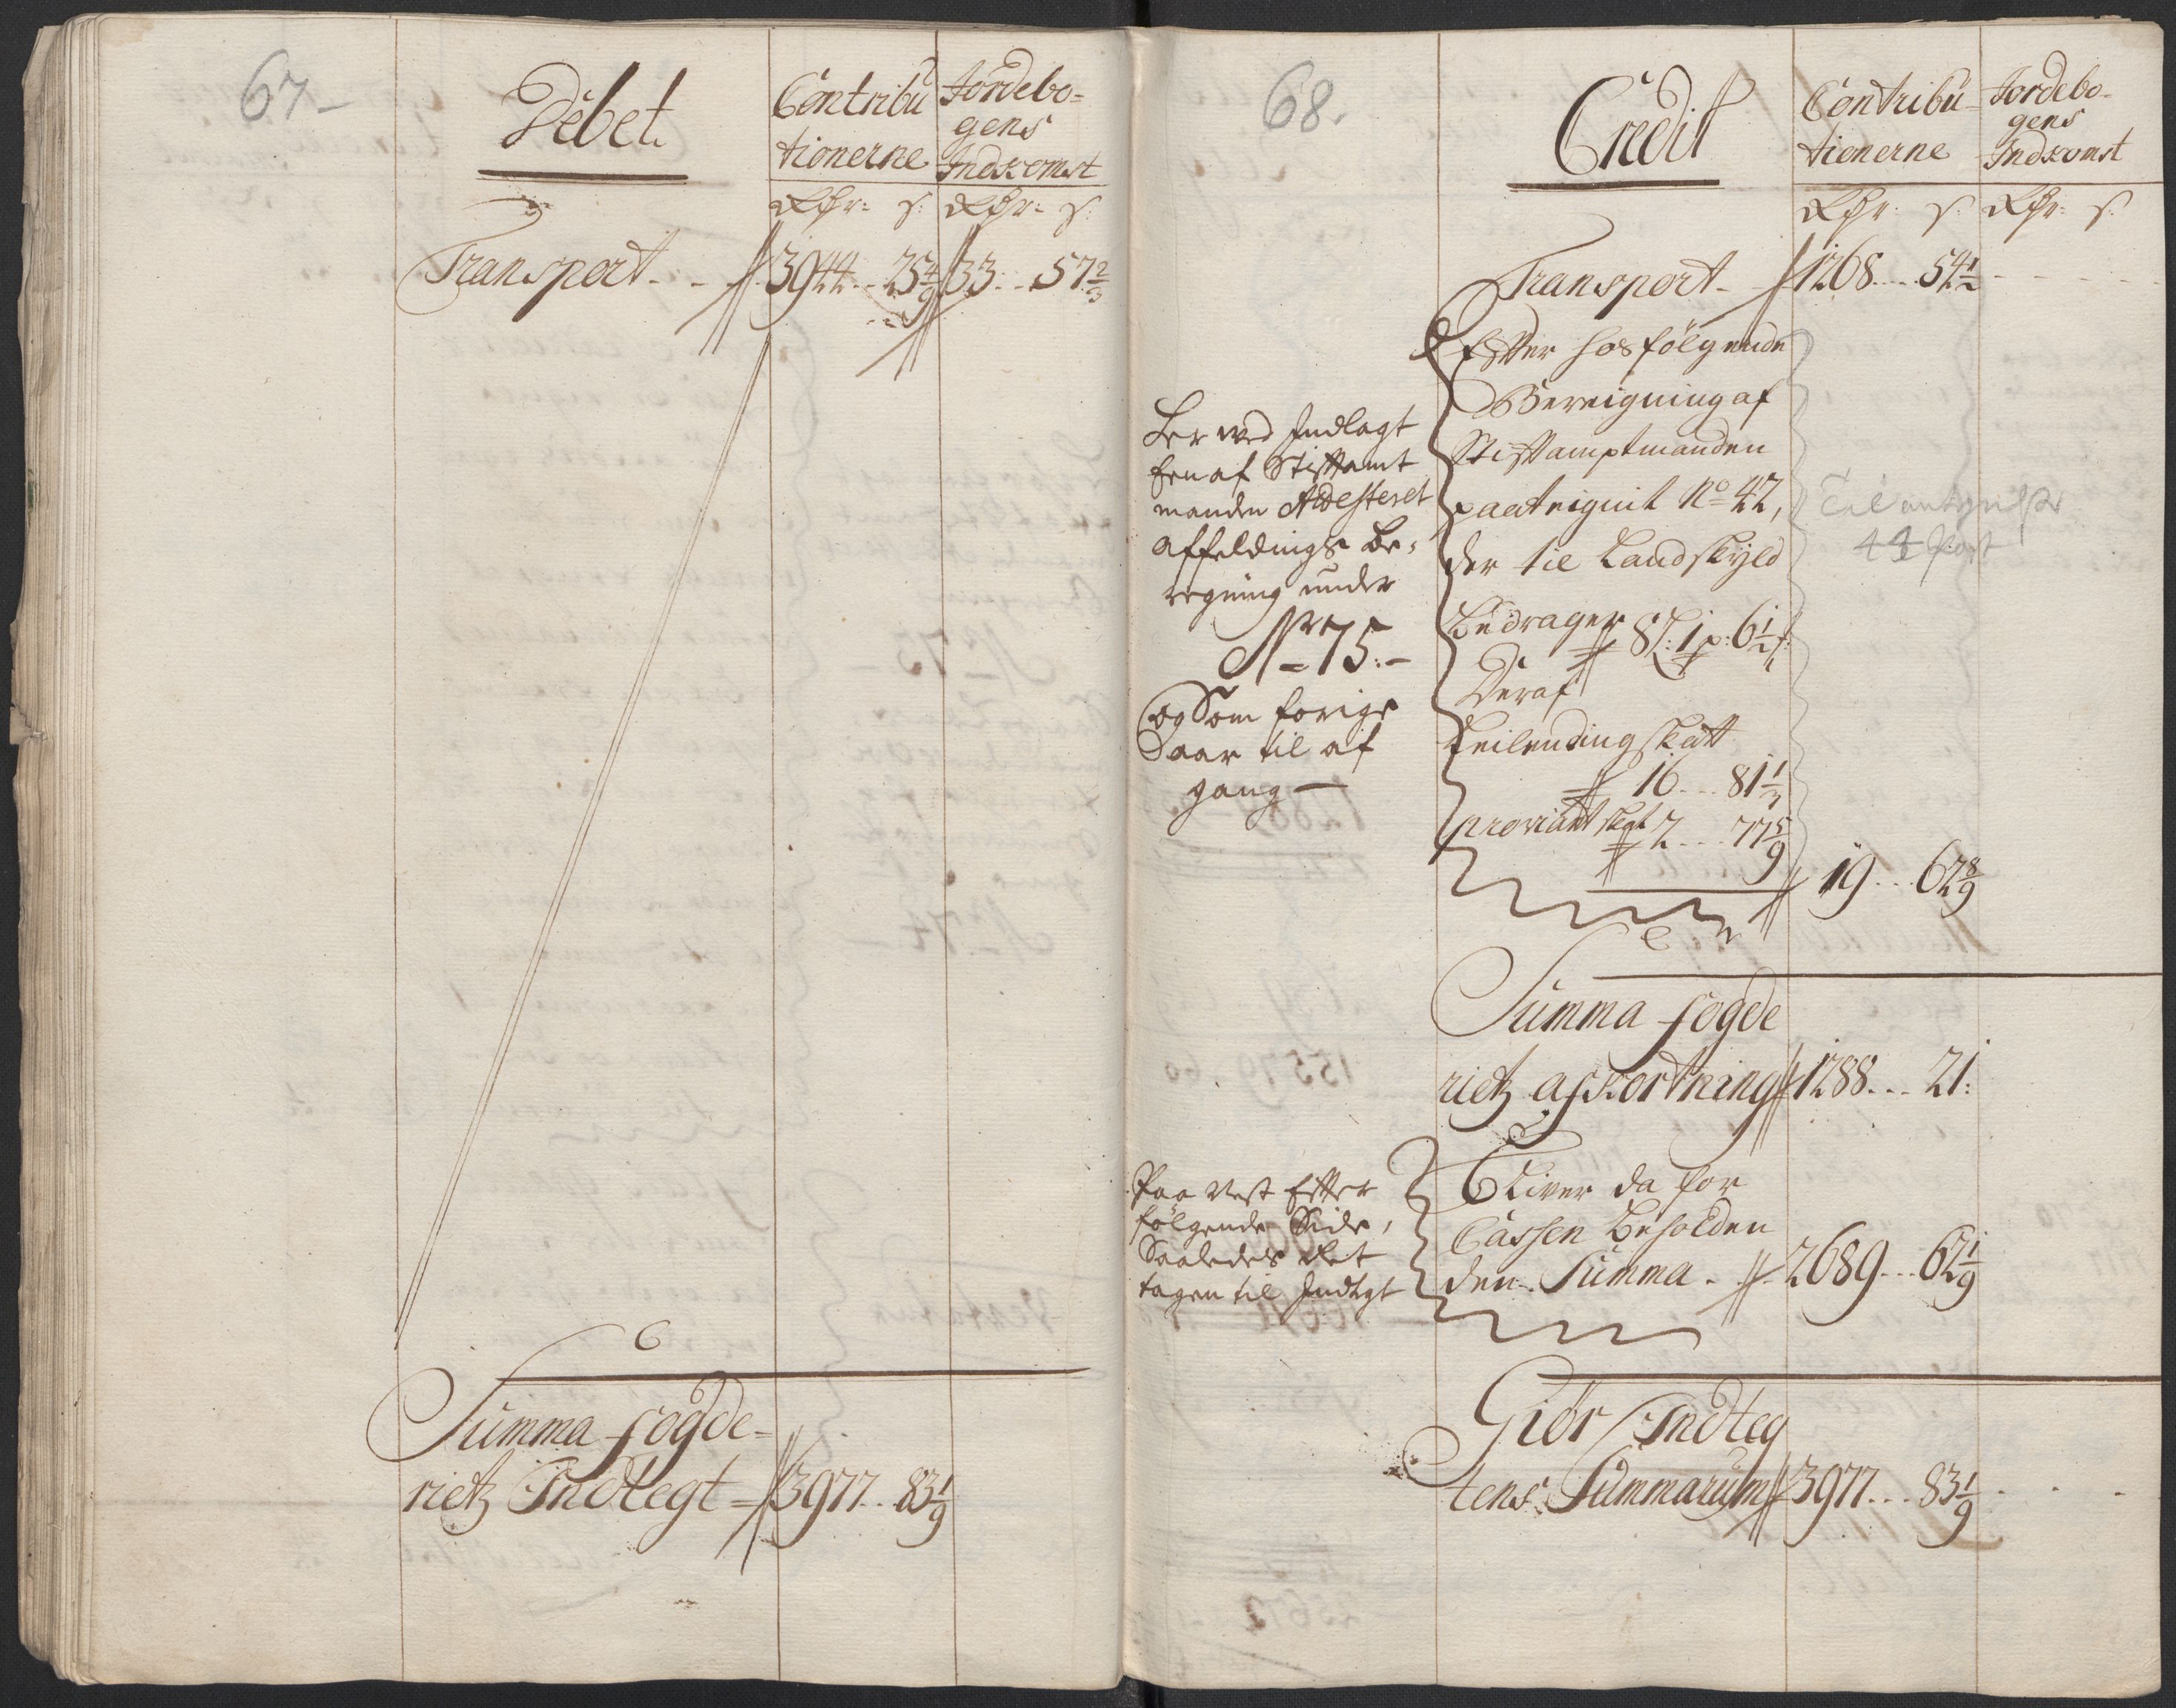 67-
Debet.
Contribu
tionerne
Jordebo-
gens
Indkomst
Rdr: s: Rdr: s:
Transport - - 3944 - - 25 4/9 33 - - 57 2/3
Summa fogde-
rietz Indtegt - 3977 - - 83 1/9
68.
Credit
Contribu-
tionerne
Jordebo-
gens
Indkomst
Rdr: s: Rdr: s:
Transport - 1268 - - - 54 1/2
Efter hosfølgende
Beregning af
Stiftamptmanden
paategnit No 42,
der til Landskyld
bedrager 8 L: 1 p: 6 1/2
Deraf
Leilending skatt
16 - - - 81 1/3
proviant skat 2 - - - 77 5/9
19 - - - 62 8/9
Her ved Indlagt
een af Stiftamt
manden Attesteret
affeldings be-
regning under
No 75:-
og Som forige
aar til af
gang -
Til antegnelse
44 Post
Summa fogde
rietz afkortning 1288 - - - 21:
Bliver da for
Cassen beholden
den Summa - 2689 - - - 62 1/9
Paa næst Efter
følgende Side,
Saaledes
tagen til Indtgt
Giør Indteg
tens Summarum 3977 - - - 83 1/9 - - -